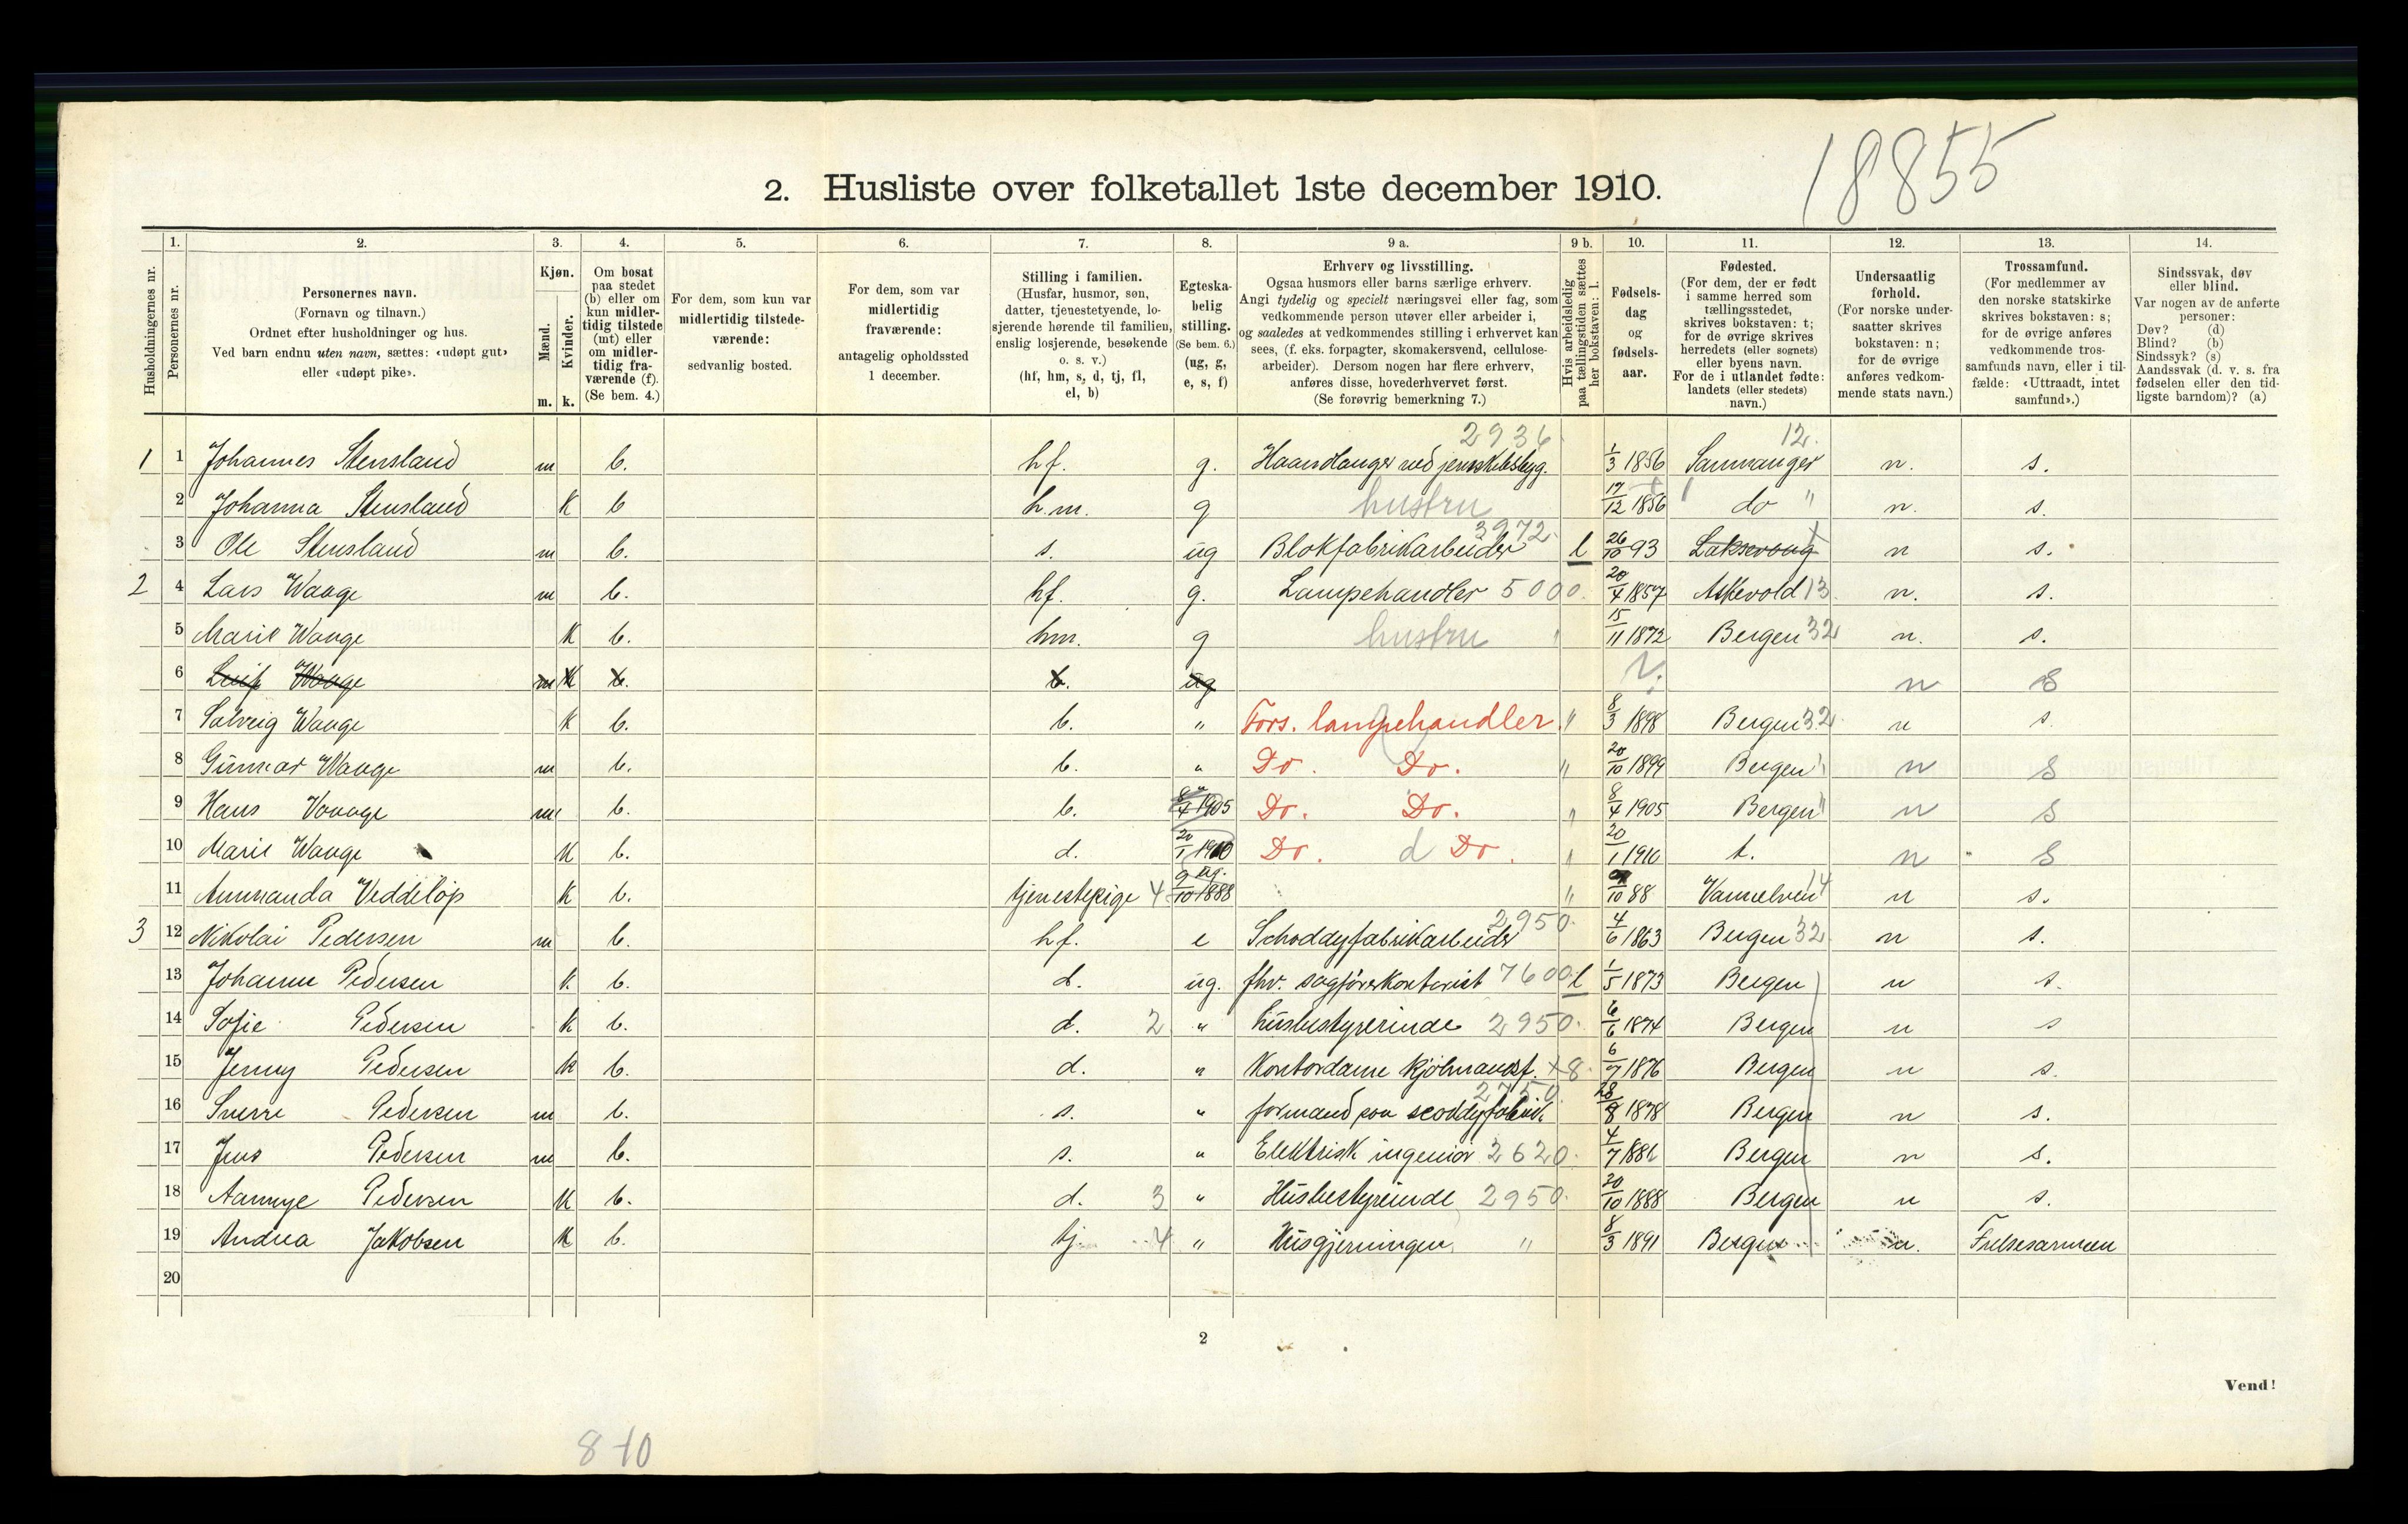 18855
2. Husliste over folketallet 1ste december 1910.
Husholdningernes nr.
1. Personernes nr.
2. Personernes navn.
(Fornavn og tilnavn.)
Ordnet efter husholdninger og hus.
Ved barn endnu uten navn, sættes: «udøpt gut»
eller «udøpt pike».
3. Kjøn.
Mænd. m.
Kvinder. k.
4. Om bosat
paa stedet
(b) eller om
kun midler-
tidig tilstede
(mt) eller
om midler-
tidig fra-
værende (f).
(Se bem. 4.)
5. For dem, som kun var
midlertidig tilstede-
værende:
sedvanlig bosted.
6. For dem, som var
midlertidig
fraværende:
antagelig opholdssted
1 december.
7. Stilling i familien.
(Husfar, husmor, søn,
datter, tjenestetyende, lo-
sjerende hørende til familien,
enslig losjerende, besøkende
o. s. v.)
(hf, hm, s, d, tj, fl,
el, b)
8. Egteska-
belig
stilling.
(Se bem. 6.)
(ug, g,
e, s, f)
9 a. Erhverv og livsstilling.
Ogsaa husmors eller barns særlige erhverv.
Angi tydelig og specielt næringsvei eller fag, som
vedkommende person utøver eller arbeider i,
og saaledes at vedkommendes stilling i erhvervet kan
sees, (f. eks. forpagter, skomakersvend, cellulose-
arbeider). Dersom nogen har flere erhverv,
anføres disse, hovederhvervet først.
(Se forøvrig bemerkning 7.)
9 b. Hvis arbeidsledig
paa tællingstiden sættes
her bokstaven: l.
10. Fødsels-
dag
og
fødsels-
aar.
11. Fødested.
(For dem, der er født
i samme herred som
tællingsstedet,
skrives bokstaven: t;
for de øvrige skrives
herredets (eller sognets)
eller byens navn.
For de i utlandet fødte:
landets (eller stedets)
navn.)
12. Undersaatlig
forhold.
(For norske under-
saatter skrives
bokstaven: n;
for de øvrige
anføres vedkom-
mende stats navn.)
13. Trossamfund.
(For medlemmer av
den norske statskirke
skrives bokstaven: s;
for de øvrige anføres
vedkommende tros-
samfunds navn, eller i til-
fælde: «Uttraadt, intet
samfund».)
14. Sindssvak, døv
eller blind.
Var nogen av de anførte
personer:
Døv? (d)
Blind? (b)
Sindssyk? (s)
Aandssvak (d. v. s. fra
fødselen eller den tid-
ligste barndom)? (a)
2936 12.
1 1 Johannes Stensland m b. hf. g. Haandlanger ved jernskibsbyg. 1/3 1856 Samnanger n. s.
2 Johanna Stensland k b h.m. g hustru 17/12 1856 do " n. s.
3 Ole Stensland m b. s. ug Blokfabrikarbeider 3972. l 26/10 93 Laksevaag n s.
2 4 Lars Waage m b. hf. g. Lampehandler 5000. 20/4 1857 Askevold 13 n. s.
5 Marie Waage k b. hm. g hustru 15/11 1872 Bergen 32 n. s.
6 Leif Waage m k b. b. ug n S
7 Solveig Waage k b. b. " Fors. lampehandler " 8/3 1898 Bergen 32 n s.
8 Gunnar Waage m b. b. " Do. Do. " 20/10 1899 Bergen " n S
9 Hans Vaage m b. b. 8/4 1905 Do. Do. " 8/4 1905 Bergen " n S
10 Marie Waage k b. d. 20/1 1910 Do. d Do. " 20/1 1910 t. n S
11 Ammanda Veddeløp k b. tjenestepige 4 ug. 9/10 1888 " 9/10 88 Vannelven 14 n s.
3 12 Nikolai Pedersen m b. hf. e Schoddyfabrikarbeider 2950. 4/6 1863 Bergen 32 n s.
13 Johanne Pedersen k b. d. ug. fhv. sagførerkontorist 7600. l 1/5 1873 Bergen n s.
14 Sofie Pedersen k b. d. 2 " husbestyrerinde 2950. 6/6 1874 Bergen n s
15 Jenny Pedersen k b. d. " Kontordame kjøbmandsf. +8. 6/7 1876 Bergen n s.
16 Sverre Pedersen m b. s. " formand paa scoddyfabrik. 2750. 28/8 1878 Bergen n s.
17 Jens Pedersen m b. s. " Elektrisk ingeniør 2620. 4/7 1881 Bergen n s.
18 Aamye Pedersen k b. d. 3 " Husbestyrinde 2950. 20/10 1888 Bergen n s.
19 Andrea Jakobsen k b. tj. 4 " Husgjerningen " 8/3 1891 Bergen n. Frelsesarmeen
20
2
Vend!
8 10